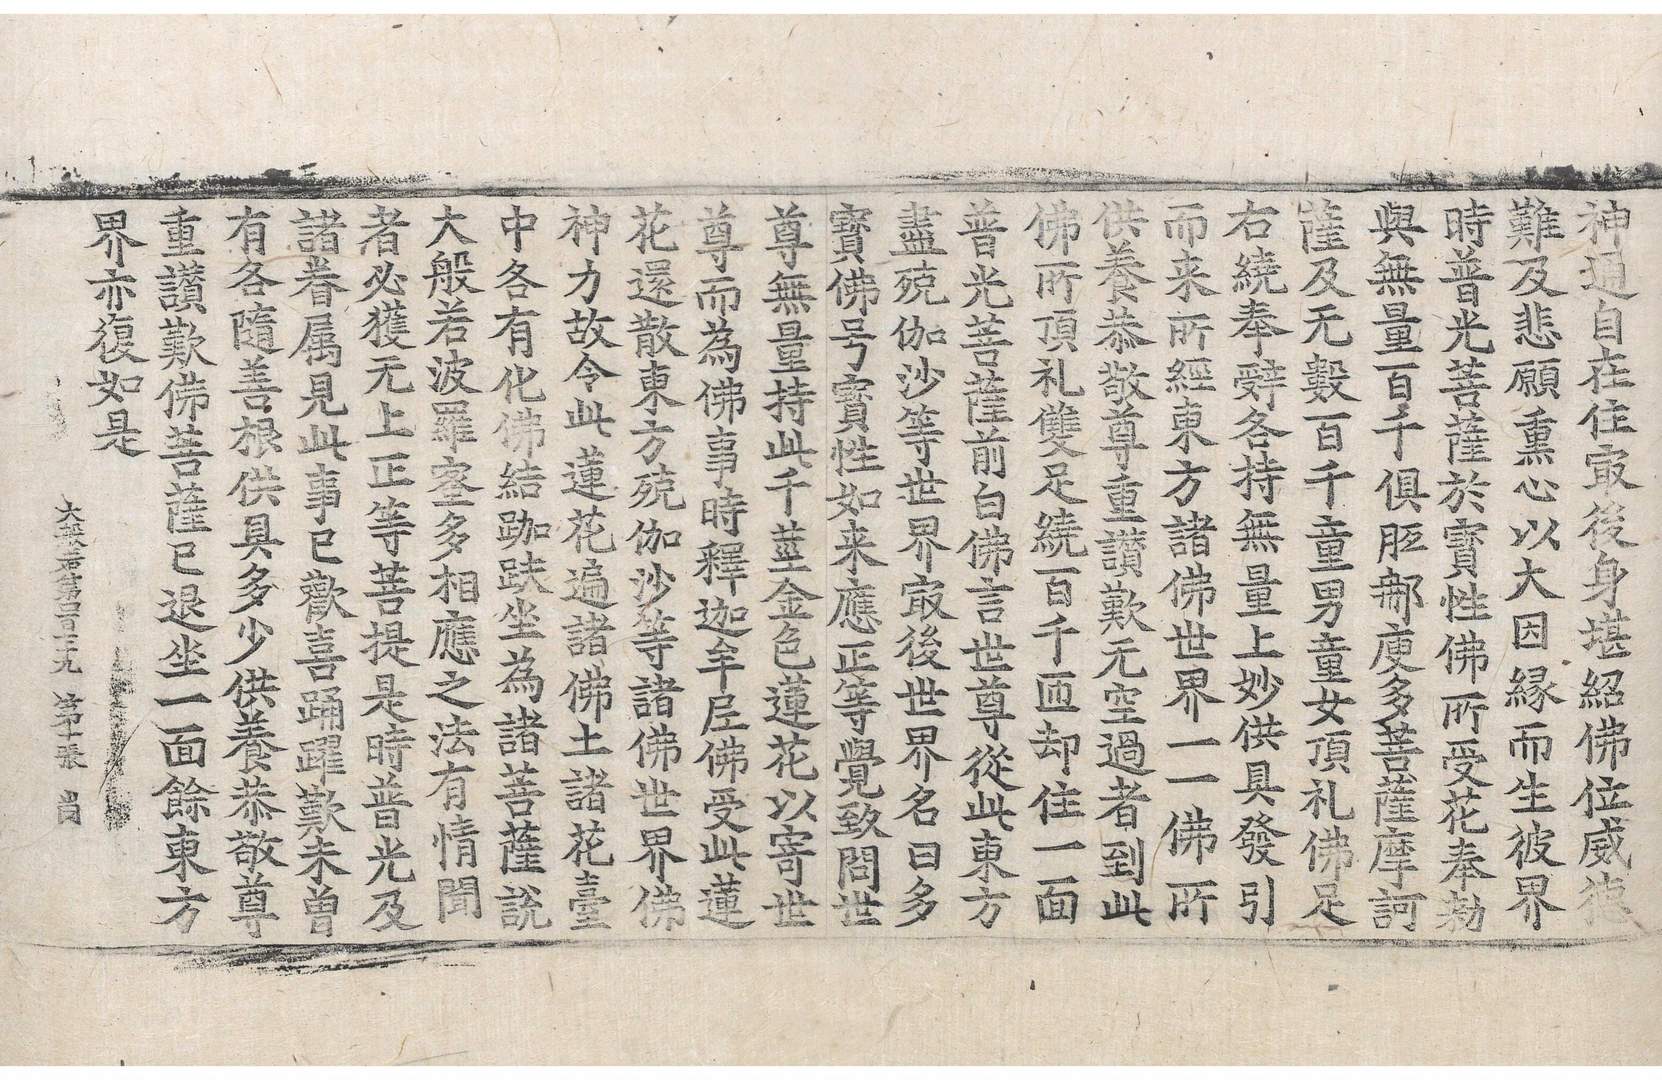 神通自在住㝡後身堪紹佛位威德
難及悲願熏心以大因緣而生彼界
時普光菩薩於寶性佛所受花奉勅
與無量百千俱胝那庾多菩薩摩訶
薩及无數百千童男童女頂礼佛足
右繞奉辝各持無量上妙供具發引
而来所經東方諸佛世界一一佛所
供養恭敬尊重讃歎无空過者到此
佛所頂礼雙足繞百千匝却住一面
普光菩薩前白佛言世尊從此東方
盡殑伽沙等世界㝡後世界名曰多
寶佛号寶性如来應正等覺致問世
尊無量持此千莖金色蓮花以寄世
尊而為佛事時釋迦牟尼佛受此蓮
花還散東方殑伽沙等諸佛世界佛
神力故令此蓮花遍諸佛土諸花臺
中各有化佛結跏趺坐為諸菩薩說
大般若波羅蜜多相應之法有情聞
者必獲无上正等菩提是時普光及
諸眷属見此事已歡喜踊躍歎未曾
有各隨善根供具多少供養恭敬尊
重讃歎佛菩薩已退坐一面餘東方
界亦復如是
大般若第四百七十九 第十張